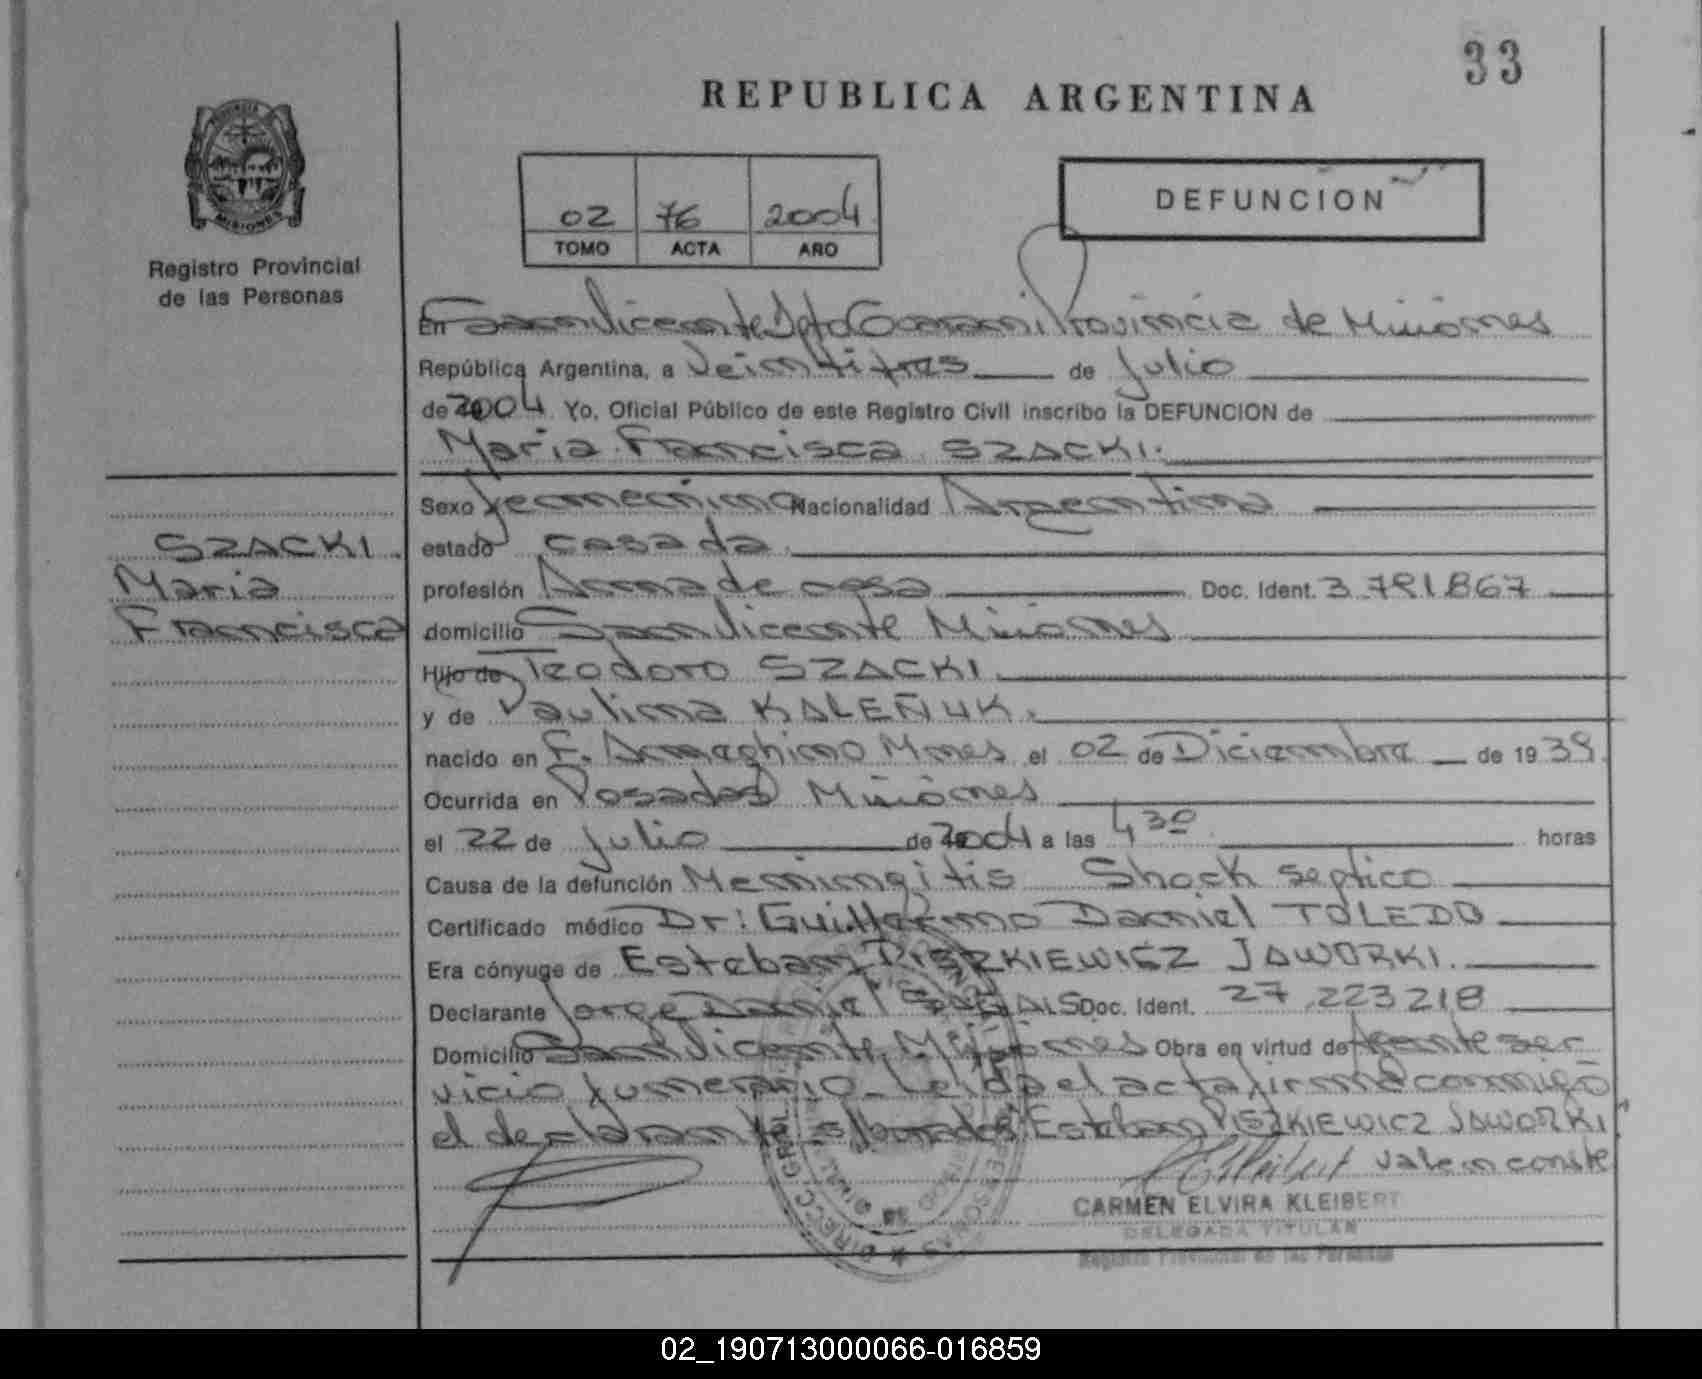 33
REPUBLICA ARGENTINA
MISIONES
Registro Provincial
de las Personas
02 76 2004
TOMO ACTA AÑO
DEFUNCION
En San Vicente Dpto Guarani Provincia de Misiones
República Argentina, a Veintitres de Julio
de 2004 Yo, Oficial Público de este Registro Civil inscribo la DEFUNCION de
Maria Francisca SZACKI.
SZACKI
Maria
Francisca
Sexo femenino Nacionalidad Argentina
estado casada
profesión Ama de casa Doc. Ident. 3.781.867
domicilio San Vicente Misiones
Hijo de Teodoro SZACKI
y de Paulina KALEÑUK.
nacido en F. Ameghino Mnes el 02 de Diciembre de 1939
Ocurrida en Posadas Misiones
el 22 de Julio de 2004 a las 4 30 horas
Causa de la defunción Meningitis Shock septico
Certificado médico Dr: Guillermo Daniel TOLEDO
Era cónyuge de Esteban PISZKIEWICZ JAWORKI.
Declarante Jorge Daniel Doc. Ident. 27.223218
Domicilio San Vicente, Misiones Obra en virtud de Agente ser
vicio funerario Leida el acta, firma conmigo
el declarante s/borrado: Esteban PISZKIEWICZ JAWORKI
vale conste
CARMEN ELVIRA KLEIBERT
DELEGADA TITULAR
Registro Provincial de las Personas
02_190713000066-016859